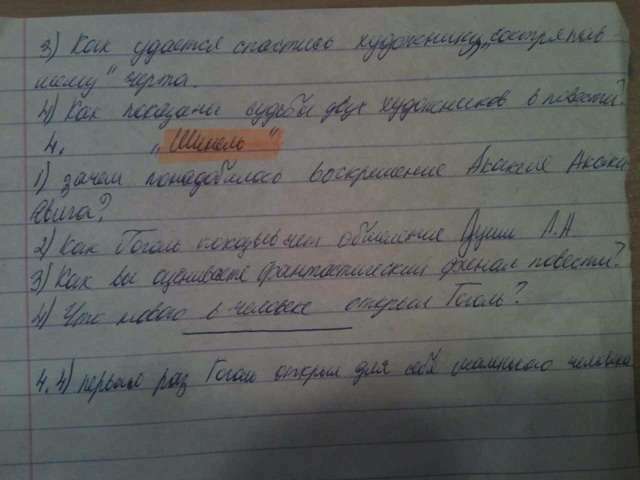 3) Как удается спастись художнику, „состряпыв
шему" черта.
4) Как показаны судьбы двух художников в повести?
4. „Шинель"
1) Зачем понадобилось воскрешение Акакия Акаки
евича?
2) Как Гоголь показывает обмеление души А.А
3) Как вы оцениваете фантастический финал повести?
4) Что нового в человеке открыл Гоголь?
4.4) первые раз Гоголь открыл для себя маленького человека